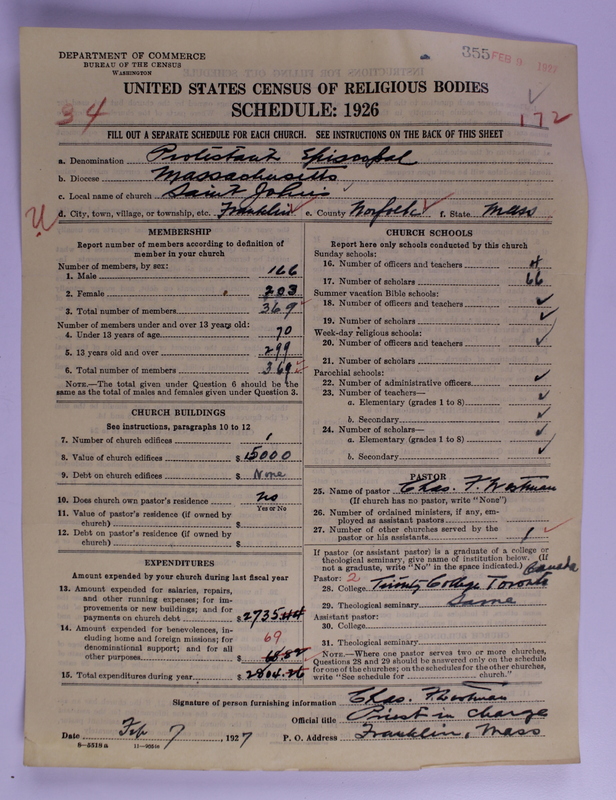 355 FEB 9 1927
DEPARTMENT OF COMMERCE
BUREAU OF THE CENSUS
WASHINGTON
UNITED STATES CENSUS OF RELIGIOUS BODIES
SCHEDULE: 1926
34
172
FILL OUT A SEPARATE SCHEDULE FOR EACH CHURCH. SEE INSTRUCTIONS ON THE BACK OF THIS SHEET
a. Denomination Protestant Episcopal
b. Diocese Massachusetts
c. Local name of church Saint John's
d. City, town, village, or township, etc. Franklin e. County Norfolk f. State Mass
MEMBERSHIP
Report number of members according to definition of
member in your church
Number of members, by sex:
1. Male 166
2. Female 203
3. Total number of members 369
Number of members under and over 13 years old:
4. Under 13 years of age 70
5. 13 years old and over 299
6. Total number of members 369
NOTE.—The total given under Question 6 should be the
same as the total of males and females given under Question 3.
CHURCH BUILDINGS
See instructions, paragraphs 10 to 12
7. Number of church edifices 1
8. Value of church edifices $ 15000
9. Debt on church edifices $ None
10. Does church own pastor's residence No
Yes or No
11. Value of pastor's residence (if owned by
church) $
12. Debt on pastor's residence (if owned by
church) $
EXPENDITURES
Amount expended by your church during last fiscal year
13. Amount expended for salaries, repairs,
and other running expenses; for im-
provements or new buildings; and for
payments on church debt $ 2735.44
14. Amount expended for benevolences, in-
cluding home and foreign missions; for
denominational support; and for all
other purposes $ 68.82
69
15. Total expenditures during year $ 2804.26
CHURCH SCHOOLS
Report here only schools conducted by this church
Sunday schools:
16. Number of officers and teachers
17. Number of scholars 66
Summer vacation Bible schools:
18. Number of officers and teachers
19. Number of scholars
Week-day religious schools:
20. Number of officers and teachers
21. Number of scholars
Parochial schools:
22. Number of administrative officers
23. Number of teachers—
a. Elementary (grades 1 to 8)
b. Secondary
24. Number of scholars—
a. Elementary (grades 1 to 8)
b. Secondary
PASTOR
25. Name of pastor Chas. F. Westman
(If church has no pastor, write "None")
26. Number of ordained ministers, if any, em-
ployed as assistant pastors
27. Number of other churches served by the
pastor or his assistants 1
If pastor (or assistant pastor) is a graduate of a college or
theological seminary, give name of institution below. (If
not a graduate, write "No" in the space indicated.) Canada
Pastor: 2
28. College Trinity College Toronto
29. Theological seminary Same
Assistant pastor:
30. College
31. Theological seminary
NOTE.—Where one pastor serves two or more churches,
Questions 28 and 29 should be answered only on the schedule
for one of the churches; on the schedules for the other churches,
write "See schedule for church."
Signature of person furnishing information Chas. F. Westman
Official title Priest in charge
Date Feb 7, 1927 P. O. Address Franklin, Mass
8-5518a